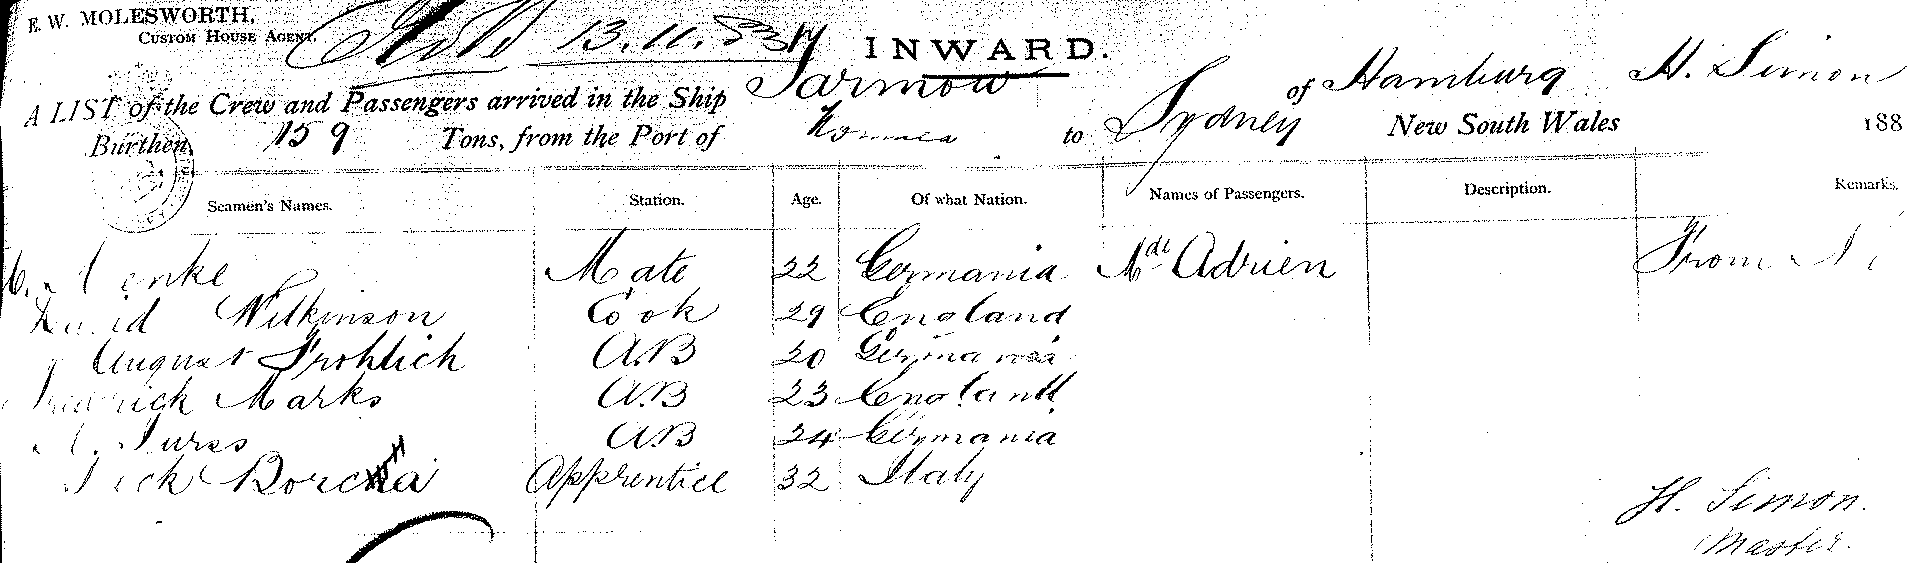 E. W. MOLESWORTH,
CUSTOM HOUSE AGENT.
13.11.
INWARD.
A LIST of the Crew and Passengers arrived in the Ship Sarmow of Hamburg H. Simon
Burthen 159 Tons, from the Port of to Sydney New South Wales 188
Seamen's Names. Station. Age. Of what Nation. Names of Passengers. Description. Remarks.
Mate 22 Germania Mde Adrien From
David Wilkinson Cook 29 England
August Frohlich A.B 20 Germania
Fredrick Marks A.B 23 England
A.B 24 Germania
Apprentice 32 Italy
H. Simon.
Master.